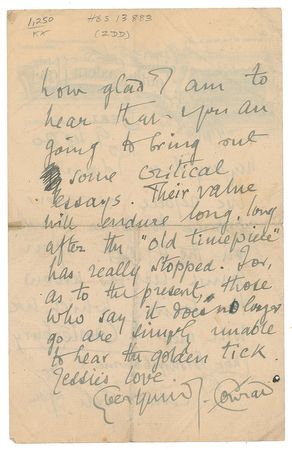 1,250
KX
HBS 13883
(2DD)
how glad I am to
hear that you are
going to bring out
some critical
essays. Their value
will endure long, long
after the "old timepiece"
has really stopped. For,
as to the present, those
who say it does no longer
go are simply unable
to hear the golden tick.
Jessie's love.
Ever Yours J. Conrad